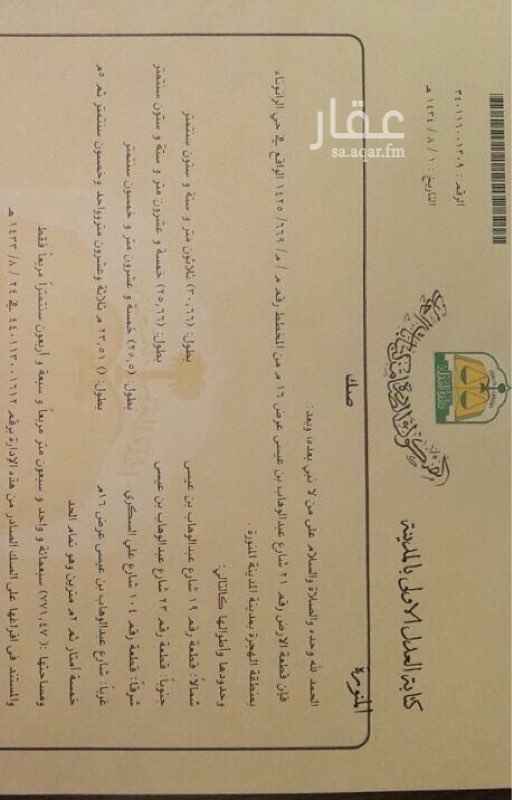 كتابة العدل الأولى بالمدينة المنورة
الرقم : ٣٤٠١١١٠٠١٣٠٩
التاريخ : ١٤٣٤/٨/١٠ هـ
صك
الحمد لله وحده والصلاة والسلام على من لا نبي بعده، وبعد:
فإن قطعة الارض رقم ٢١ شارع عبدالوهاب بن عيسى عرض ١٦ م من المخطط رقم م / م/ ٦٦٩/ ١٤٢٥ الواقع في حي الرانوناء
بمنطقة الهجرة بمدينة المدينة المنورة .
وحدودها وأطوالها كالتالي:
شمالاً: قطعة رقم ١٩ شارع عبدالوهاب بن عيسى بطول: (٣٠,٦٦) ثلاثون متر و ستة و ستون سنتمتر
جنوباً: قطعة رقم ٢٣ شارع عبدالوهاب بن عيسى بطول: (٢٥,٦٦) خمسة و عشرون متر و ستة و ستون سنتمتر
شرقاً: قطعة رقم ١٠٤ شارع علي السكري بطول: (٢٥,٥) خمسة و عشرون متر و خمسون سنتمتر
غرباً: شارع عبدالوهاب بن عيسى عرض ١٦م بطول: () ٢٣,٥١ م ثلاثة وعشرون مترو واحد وخمسون سنتمتر ثم ٥م
خمسة أمتار ثم ٢م مترين وهو تمام الحد
ومساحتها :( ٧٧١,٤٧) سبعمائة و واحد و سبعون متر مربعاً و سبعة و أربعون سنتمتراً مربعاً فقط
والمستند في افراغها على الصك الصادر من هذه الإدارة برقم ٤٤٠١١٣٠٠١٦١٢ في ٢٤ / ٨ / ١٤٣٣ هـ
عقار
sa.aqar.fm